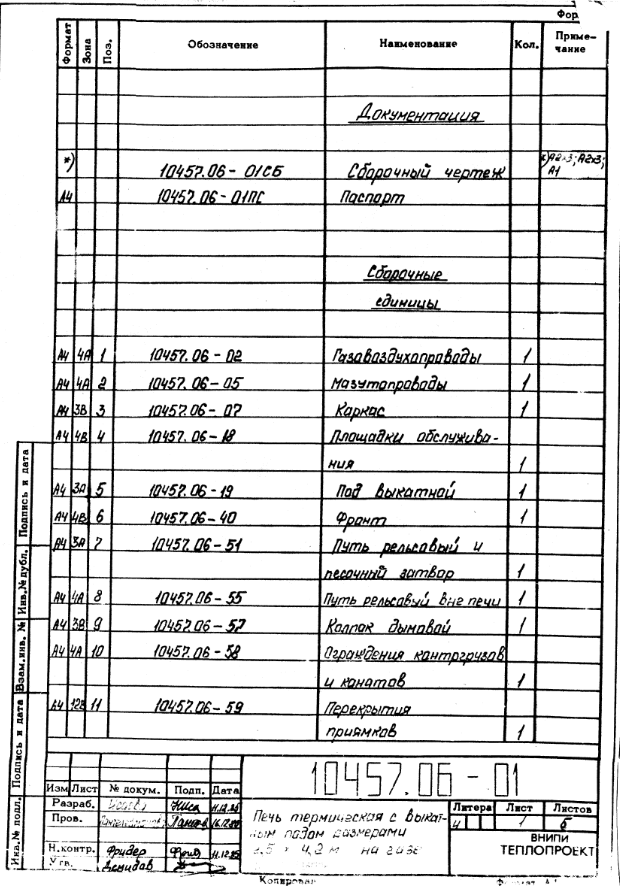 Фор
Формат Зона Поз. Обозначение Наименование Кол. Приме-
чание
Документация
*) 10457.06-01СБ Сборочный чертеж *)А2х3; А2х3;
А1
А4 10457.06-01ПС Паспорт
Сборочные
единицы
А4 4А 1 10457.06-02 Газовоздухопроводы 1
А4 4А 2 10457.06-05 Мазутопроводы 1
А4 3В 3 10457.06-07 Каркас 1
А4 4В 4 10457.06-18 Площадки обслужива-
ния 1
А4 3А 5 10457.06-19 Под выкатной 1
А4 4В 6 10457.06-40 Фронт 1
А4 3А 7 10457.06-51 Путь рельсовый и
песочный затвор 1
А4 4А 8 10457.06-55 Путь рельсовый вне печи 1
А4 3В 9 10457.06-57 Колпак дымовой 1
А4 4А 10 10457.06-58 Ограждения контргрузов
и канатов 1
А4 12В 11 10457.06-59 Перекрытия
приямков 1
Подпись и дата
Инв.№ дубл.
Взам.инв. №
Подпись и дата
Инв.№ подл.
10457.06-01
Изм Лист № докум. Подп. Дата
Разраб.
Пров.
Н.контр. Фридер
Утв. Демидов
Печь термическая с выкат-
ным подом размерами
4,2 м на газе
Литера Лист Листов
И 1 5
ВНИПИ
ТЕПЛОПРОЕКТ
Копировал
Формат А4